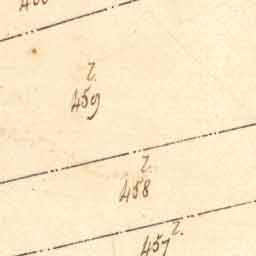 z.
459
z.
458
z.
457